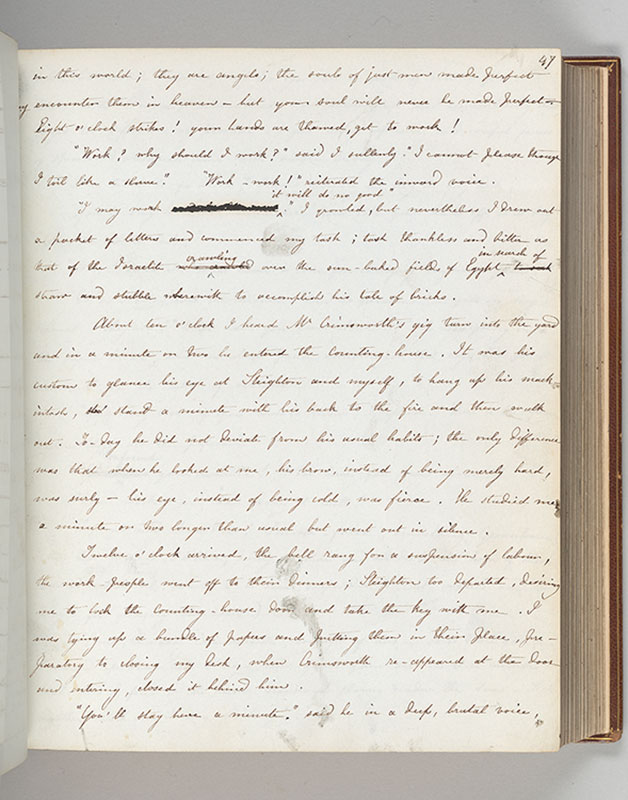 47
in this world ; they are angels ; the souls of just men made perfect
may encounter them in heaven — but your soul will never be made perfect —
Eight o'clock strikes ! your hands are thawed, get to work !
"Work ? why should I work ?" said I sullenly " I cannot please though
I toil like a slave." "Work - work !" reiterated the inward voice .
it will do no good
"I may work ," I growled, but nevertheless I drew out
a packet of letters and commenced my task ; task thankless and bitter as
crawling in search of
that of the Israelite over the sun-baked fields of Egypt
straw and stubble wherewith to accomplish his tale of bricks .
About ten o'clock I heard Mr Crimsworth's gig turn into the yard
and in a minute or two he entered the counting-house . It was his
custom to glance his eye at Steighton and myself , to hang up his mack-
intosh , stand a minute with his back to the fire and then walk
out . To-day he did not deviate from his usual habits ; the only difference
was that when he looked at me , his brow, instead of being merely hard,
was surly — his eye, instead of being cold , was fierce . He studied me
a minute or two longer than usual but went out in silence .
Twelve o'clock arrived, the bell rang for a suspension of labour,
the work-people went off to their dinners ; Steighton too departed , desiring
me to lock the counting-house door and take the key with me . I
was tying up a bundle of papers and putting them in their place , pre-
paratory to closing my desk , when Crimsworth re-appeared at the door
and entering, closed it behind him .
"You'll stay here a minute," said he in a deep, brutal voice,